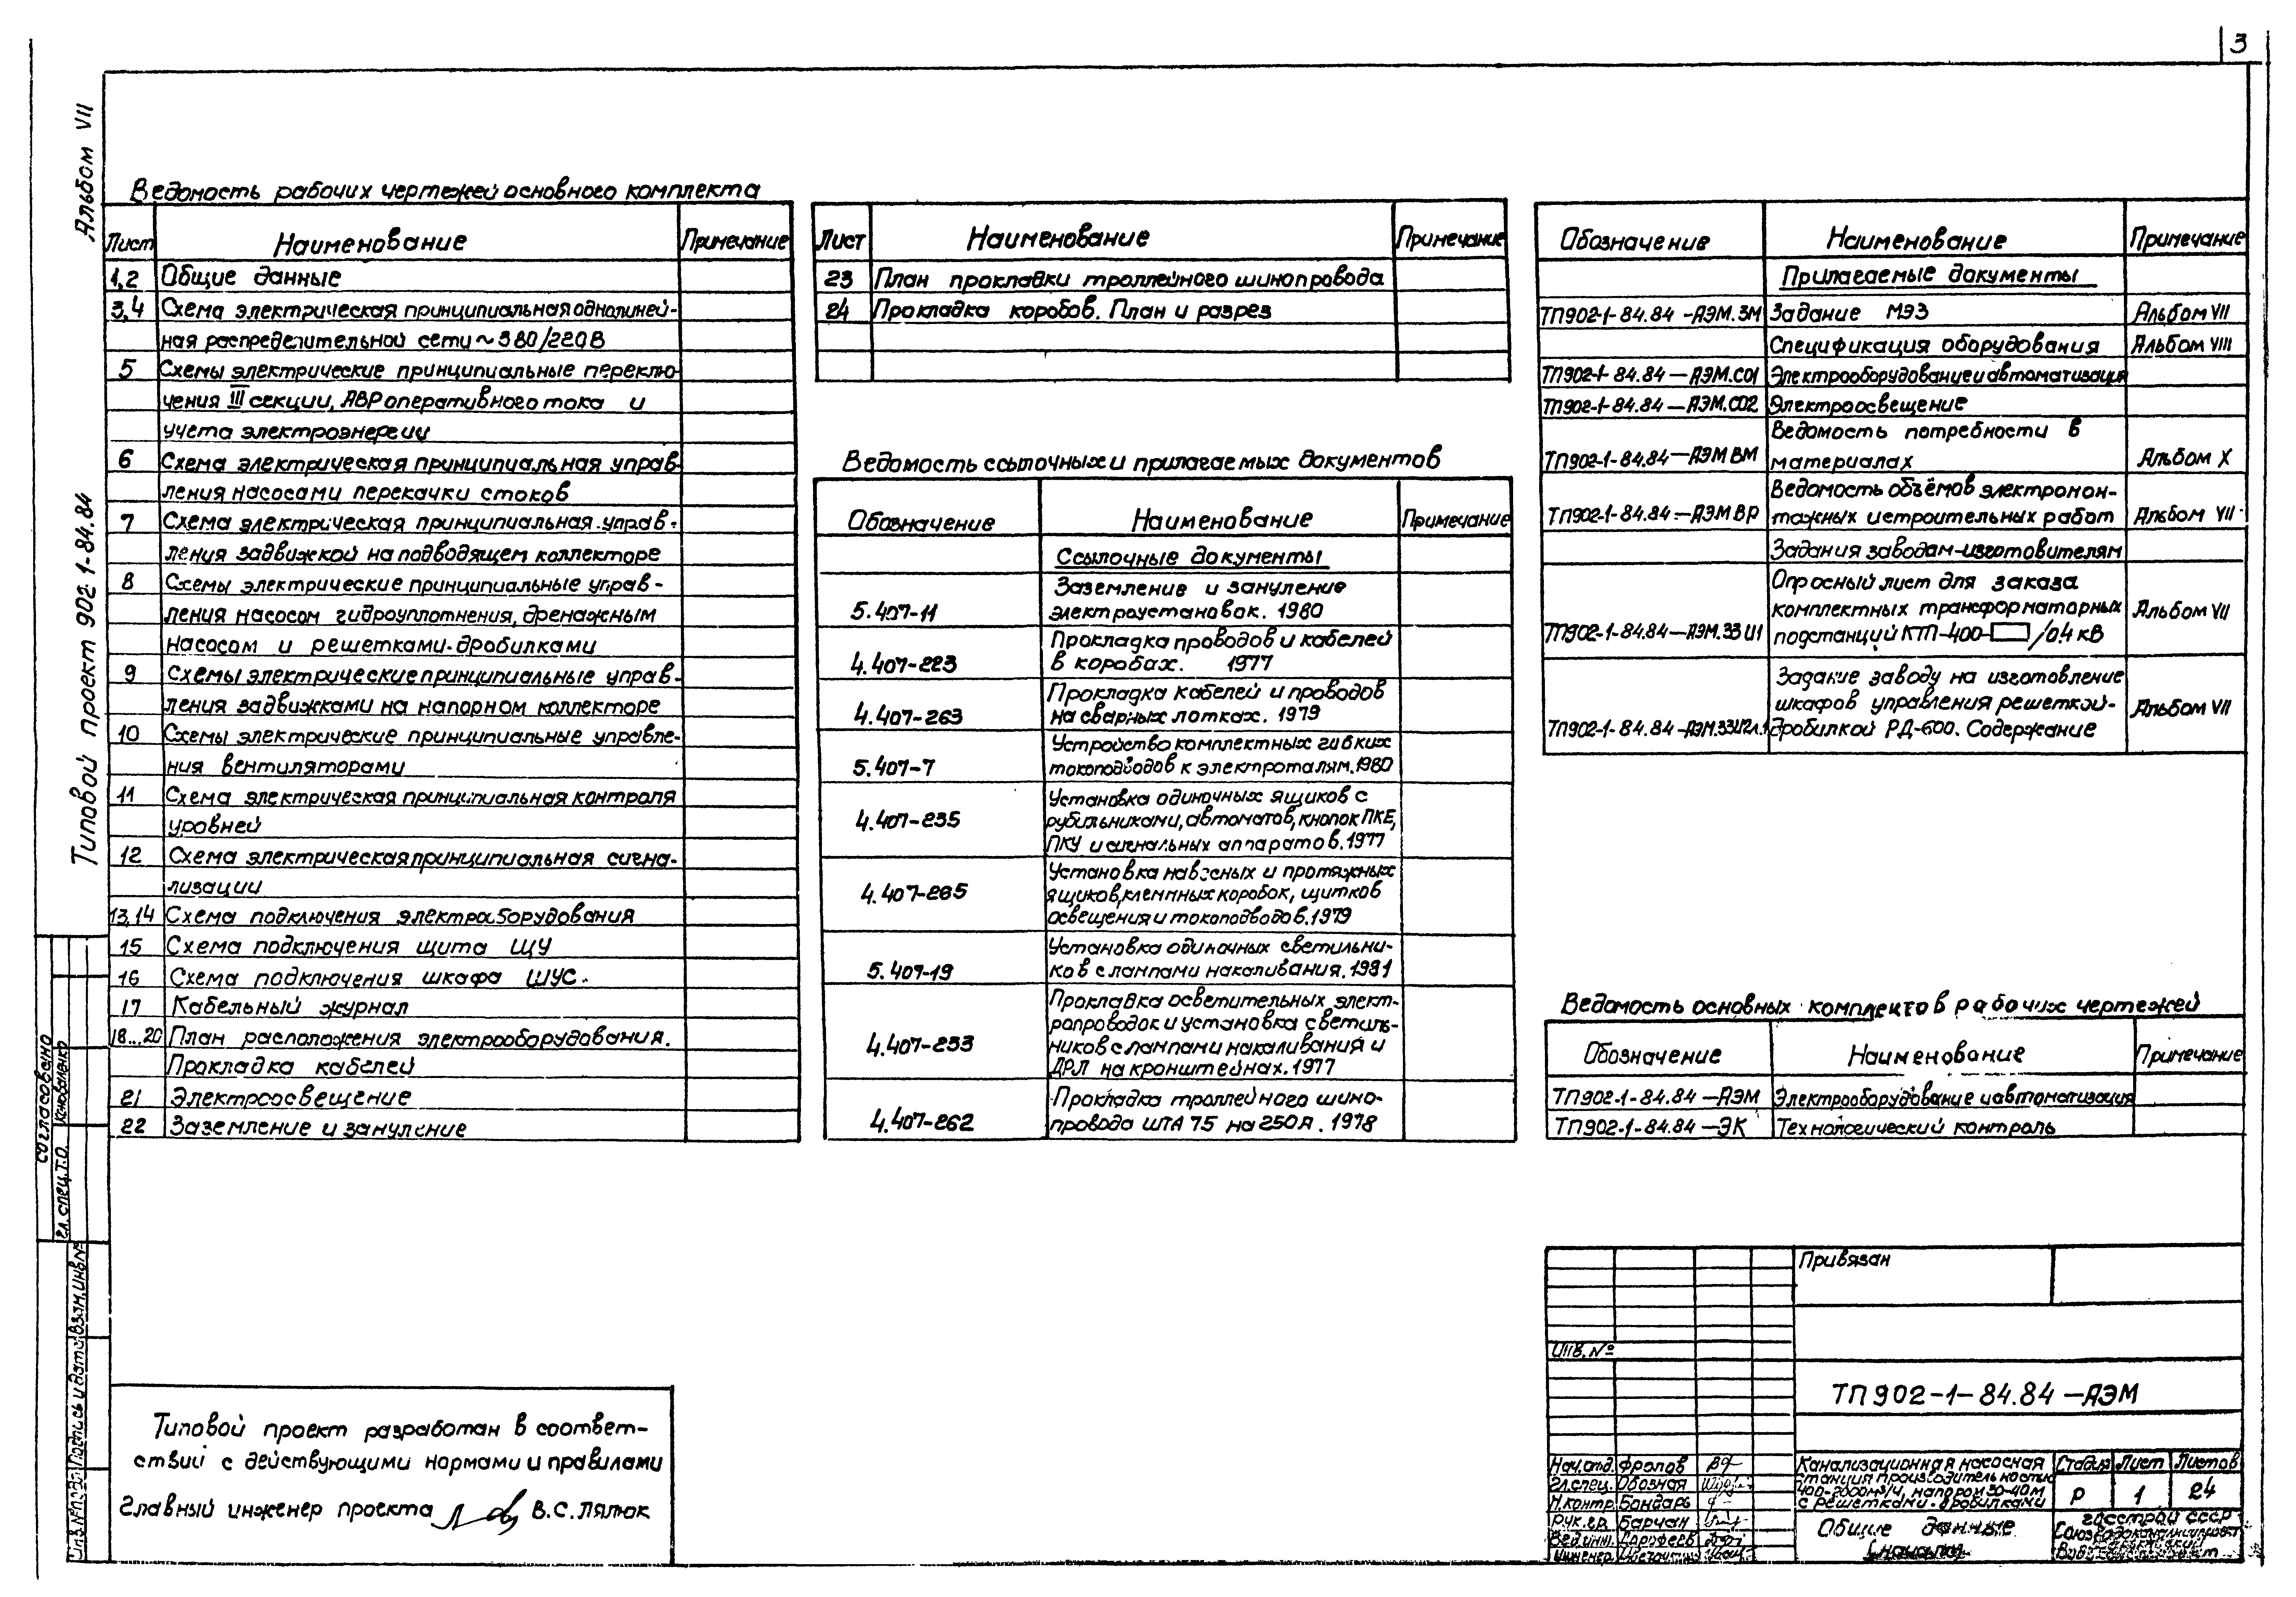 3
Альбом VII
Типовой проект 902-1-84.84
Ведомость рабочих чертежей основного комплекта
Лист Наименование Примечание
1,2 Общие данные
3,4 Схема электрическая принципиальная однолиней-
ная распределительной сети ~380/220В
5 Схемы электрические принципиальные переклю-
чения III секции, АВР оперативного тока и
учета электроэнергии
6 Схема электрическая принципиальная управ-
ления насосами перекачки стоков
7 Схема электрическая принципиальная управ-
ления задвижкой на подводящем коллекторе
8 Схемы электрические принципиальные управ-
ления насосом гидроуплотнения, дренажным
насосом и решетками-дробилками
9 Схемы электрические принципиальные управ-
ления задвижками на напорном коллекторе
10 Схемы электрические принципиальные управле-
ния вентиляторами
11 Схема электрическая принципиальная контроля
уровней
12 Схема электрическая принципиальная сигна-
лизации
13,14 Схема подключения электрооборудования
15 Схема подключения щита ЩУ
16 Схема подключения шкафа ШУС.
17 Кабельный журнал
18...20 План расположения электрооборудования.
Прокладка кабелей
21 Электроосвещение
22 Заземление и зануление
Лист Наименование Примечание
23 План прокладки троллейного шинопровода
24 Прокладка коробов. План и разрез
Ведомость ссылочных и прилагаемых документов
Обозначение Наименование Примечание
Ссылочные документы
Заземление и зануление
5.407-11 электроустановок. 1980
Прокладка проводов и кабелей
4.407-223 в коробах. 1977
Прокладка кабелей и проводов
4.407-263 на сварных лотках. 1979
Устройство комплектных гибких
5.407-7 токоподводов к электроталям. 1980
Установка одиночных ящиков с
4.407-235 рубильниками, автоматов, кнопок ПКЕ,
ПКУ и сигнальных аппаратов. 1977
Установка навесных и протяжных
4.407-265 ящиков, клеммных коробок, щитков
освещения и токоподводов. 1979
Установка одиночных светильни-
5.407-19 ков с лампами накаливания. 1981
Прокладка осветительных элект-
ропроводок и установка светиль-
4.407-233 ников с лампами накаливания и
ДРЛ на кронштейнах. 1977
Прокладка троллейного шино-
4.407-262 провода ШТА 75 на 250А. 1978
Обозначение Наименование Примечание
Прилагаемые документы
ТП902-1-84.84-АЭМ.ЗМ Задание МЭЗ Альбом VII
Спецификация оборудования Альбом VIII
ТП902-1-84.84-АЭМ.СО1 Электрооборудование и автоматизация
ТП902-1-84.84-АЭМ.СО2 Электроосвещение
Ведомость потребности в
ТП902-1-84.84-АЭМ ВМ материалах Альбом X
Ведомость объёмов электромон-
ТП902-1-84.84-АЭМ ВР тажных и строительных работ Альбом VII
Задания заводам-изготовителям
Опросный лист для заказа
комплектных трансформаторных Альбом VII
ТП902-1-84.84-АЭМ.ЗЗИ1 подстанций КТП-400-▭/0,4 кВ
Задание заводу на изготовление
шкафов управления решеткой- Альбом VII
ТП902-1-84.84-АЭМ.ЗЗИ2л.1 дробилкой РД-600. Содержание
Ведомость основных комплектов рабочих чертежей
Обозначение Наименование Примечание
ТП902-1-84.84-АЭМ Электрооборудование и автоматизация
ТП902-1-84.84-ЭК Технологический контроль
Согласовано
Гл. спец. Т.О. Коноваленко
Инв.№ подл. Подпись и дата Взам. инв.№
Типовой проект разработан в соответ-
ствии с действующими нормами и правилами
Главный инженер проекта В.С. Лялюк
Привязан
Инв. №
ТП902-1-84.84-АЭМ
Нач.отд. Фролов
Гл.спец. Обозная
Н.контр. Бондарь
Рук.гр. Барчан
Вед.инж. Дорофеев
Инженер
Канализационная насосная
станция производительностью
400-2000м³/ч, напором 30-40м
с решетками-дробилками
Стадия Лист Листов
Р 1 24
Общие данные
(начало)
Госстрой СССР